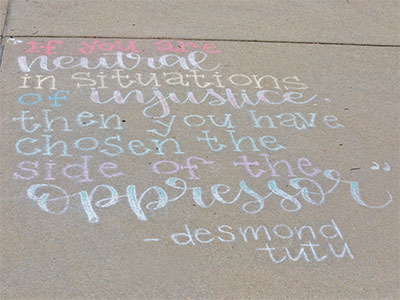 "If you are
neutral
in situations
of injustice,
then you have
chosen the
side of the
oppressor"
- desmond
tutu